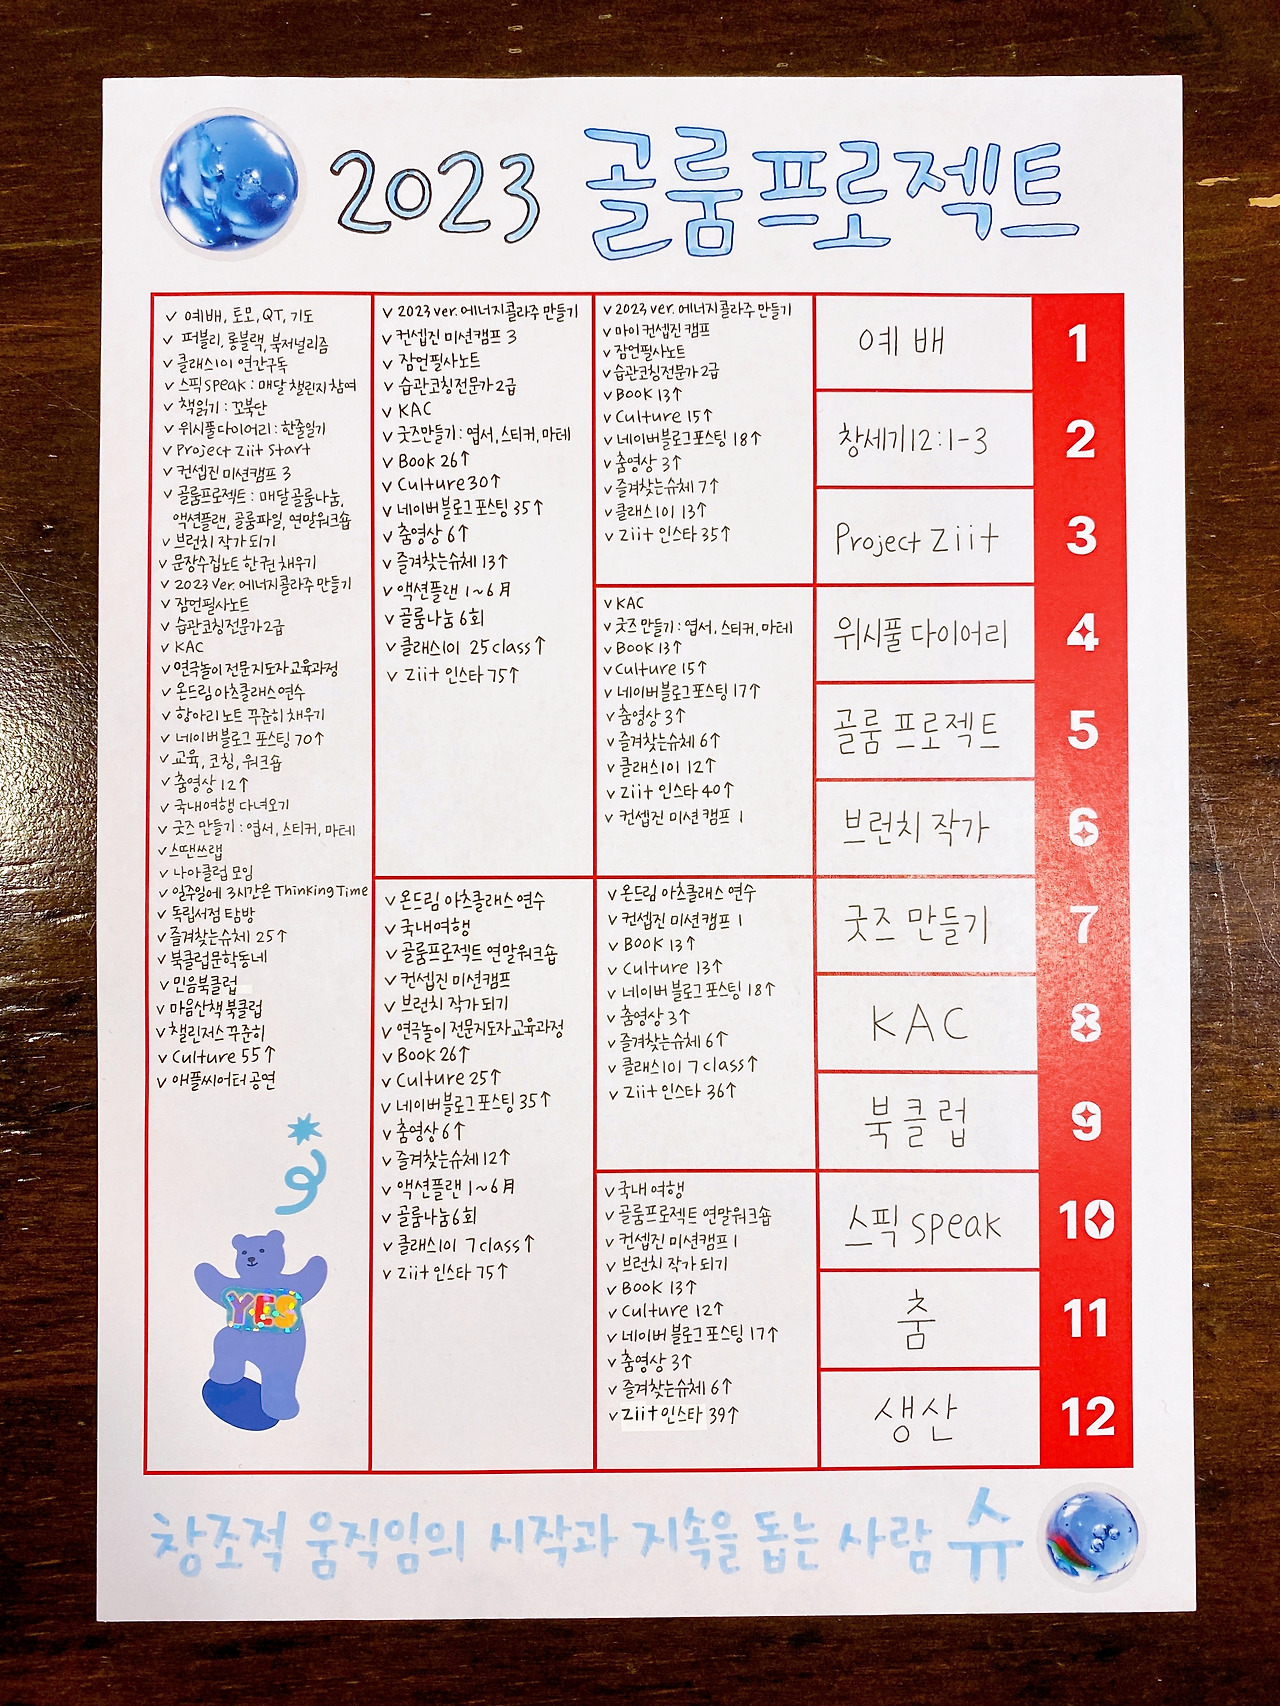 2023 골룸프로젝트
✓ 예배, 토모, QT, 기도
✓ 퍼블리, 롱블랙, 북저널리즘
✓ 클래스101 연간구독
✓ 스픽speak : 매달 챌린지 참여
✓ 책읽기 : 꼬북단
✓ 위시풀다이어리 : 한줄일기
✓ Project Ziit Start
✓ 컨셉진 미션캠프 3
✓ 골룸프로젝트 : 매달골룸나눔,
액션플랜, 골룸파일, 연말워크숍
✓ 브런치 작가 되기
✓ 문장수집노트 한 권 채우기
✓ 2023 Ver. 에너지콜라주 만들기
✓ 잠언필사노트
✓ 습관코칭전문가2급
✓ KAC
✓ 연극놀이 전문지도자교육과정
✓ 온드림 아츠클래스 연수
✓ 항아리노트 꾸준히 채우기
✓ 네이버블로그 포스팅 70↑
✓ 교육, 코칭, 워크숍
✓ 춤영상 12↑
✓ 국내여행 다녀오기
✓ 굿즈 만들기 : 엽서, 스티커, 마테
✓ 스땐쓰랩
✓ 나아클럽 모임
✓ 일주일에 3시간은 Thinking Time
✓ 독립서점 탐방
✓ 즐겨찾는슈체 25↑
✓ 북클럽문학동네
✓ 민음북클럽
✓ 마음산책 북클럽
✓ 챌린저스 꾸준히
✓ Culture 55↑
✓ 애플씨어터 공연
YES
✓ 2023 ver. 에너지콜라주 만들기
✓ 컨셉진 미션캠프 3
✓ 잠언필사노트
✓ 습관코칭전문가2급
✓ KAC
✓ 굿즈만들기 : 엽서, 스티커, 마테
✓ Book 26↑
✓ Culture 30↑
✓ 네이버블로그 포스팅 35↑
✓ 춤영상 6↑
✓ 즐겨찾는슈체 13↑
✓ 액션플랜 1~6月
✓ 골룸나눔 6회
✓ 클래스101 25 class↑
✓ Ziit 인스타 75↑
✓ 온드림 아츠클래스 연수
✓ 국내여행
✓ 골룸프로젝트 연말워크숍
✓ 컨셉진 미션캠프
✓ 브런치 작가 되기
✓ 연극놀이 전문지도자교육과정
✓ Book 26↑
✓ Culture 25↑
✓ 네이버블로그 포스팅 35↑
✓ 춤영상 6↑
✓ 즐겨찾는슈체 12↑
✓ 액션플랜 1~6月
✓ 골룸나눔6회
✓ 클래스101 7 class↑
✓ Ziit 인스타 75↑
✓ 2023 ver. 에너지콜라주 만들기
✓ 마이컨셉진 캠프
✓ 잠언필사노트
✓ 습관코칭전문가2급
✓ Book 13↑
✓ Culture 15↑
✓ 네이버블로그포스팅 18↑
✓ 춤영상 3↑
✓ 즐겨찾는슈체 7↑
✓ 클래스101 13↑
✓ Ziit 인스타 35↑
✓ KAC
✓ 굿즈 만들기 : 엽서, 스티커, 마테
✓ Book 13↑
✓ Culture 15↑
✓ 네이버블로그포스팅 17↑
✓ 춤영상 3↑
✓ 즐겨찾는슈체 6↑
✓ 클래스101 12↑
✓ Ziit 인스타 40↑
✓ 컨셉진 미션캠프 1
✓ 온드림 아츠클래스 연수
✓ 컨셉진 미션캠프 1
✓ Book 13↑
✓ Culture 13↑
✓ 네이버블로그 포스팅 18↑
✓ 춤영상 3↑
✓ 즐겨찾는슈체 6↑
✓ 클래스101 7 class↑
✓ Ziit 인스타 36↑
✓ 국내여행
✓ 골룸프로젝트 연말워크숍
✓ 컨셉진 미션캠프 1
✓ 브런치 작가 되기
✓ Book 13↑
✓ Culture 12↑
✓ 네이버 블로그 포스팅 17↑
✓ 춤영상 3↑
✓ 즐겨찾는슈체 6↑
✓ Ziit 인스타 39↑
예배 1
창세기12:1-3 2
Project Ziit 3
위시풀 다이어리 4
골룸 프로젝트 5
브런치 작가 6
굿즈 만들기 7
KAC 8
북클럽 9
스픽 speak 10
춤 11
생산 12
창조적 움직임의 시작과 지속을 돕는 사람 슈